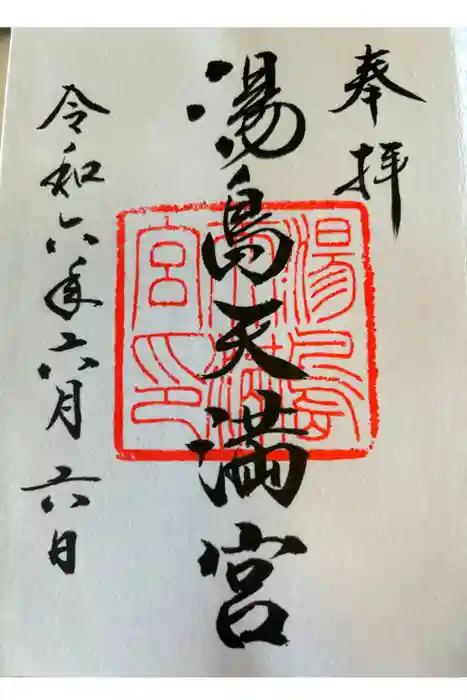 奉拝
湯島天満宮
湯島
天満
宮印
令和六年六月六日